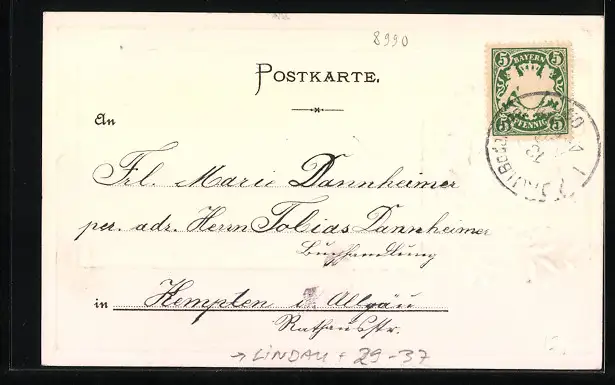 8990
5 BAYERN 5
5 PFENNIG 5
POSTKARTE.
An
Frl. Marie Dannheimer
per. adr. Herrn Tobias Dannheimer
Buchhandlung
in Kempten i. Allgäu
Rathausstr.
→ LINDAU + 29-37